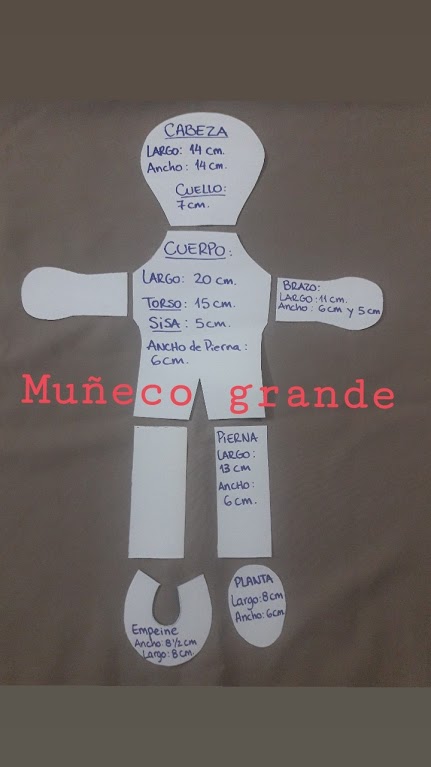 CABEZA
LARGO: 14 cm.
Ancho: 14 cm.
CUELLO:
7 cm.
CUERPO:
LARGO: 20 cm.
TORSO: 15 cm.
SISA: 5 cm.
ANCHO de Pierna:
6 cm.
BRAZO:
LARGO: 11 cm.
Ancho: 6 cm y 5 cm
Muñeco grande
PIERNA
LARGO:
13 cm
ANCHO:
6 cm.
Empeine
Ancho: 8 1/2 cm
Largo: 8 cm.
PLANTA
Largo: 8 cm
Ancho: 6 cm